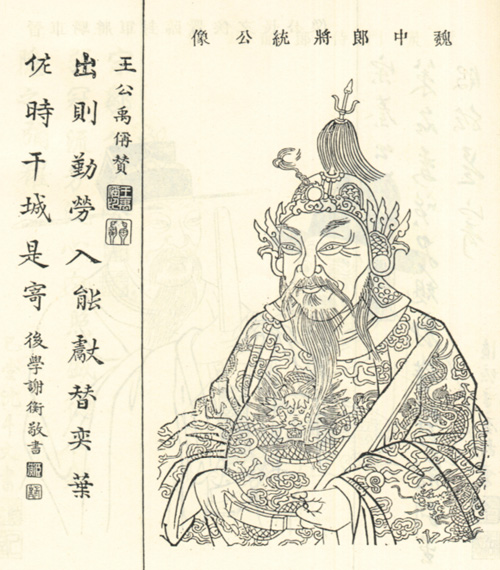 魏中郎將統公像
王公禹偁賛
出則勤勞入能獻替奕葉
佐時干城是寄
後學謝衡敬書